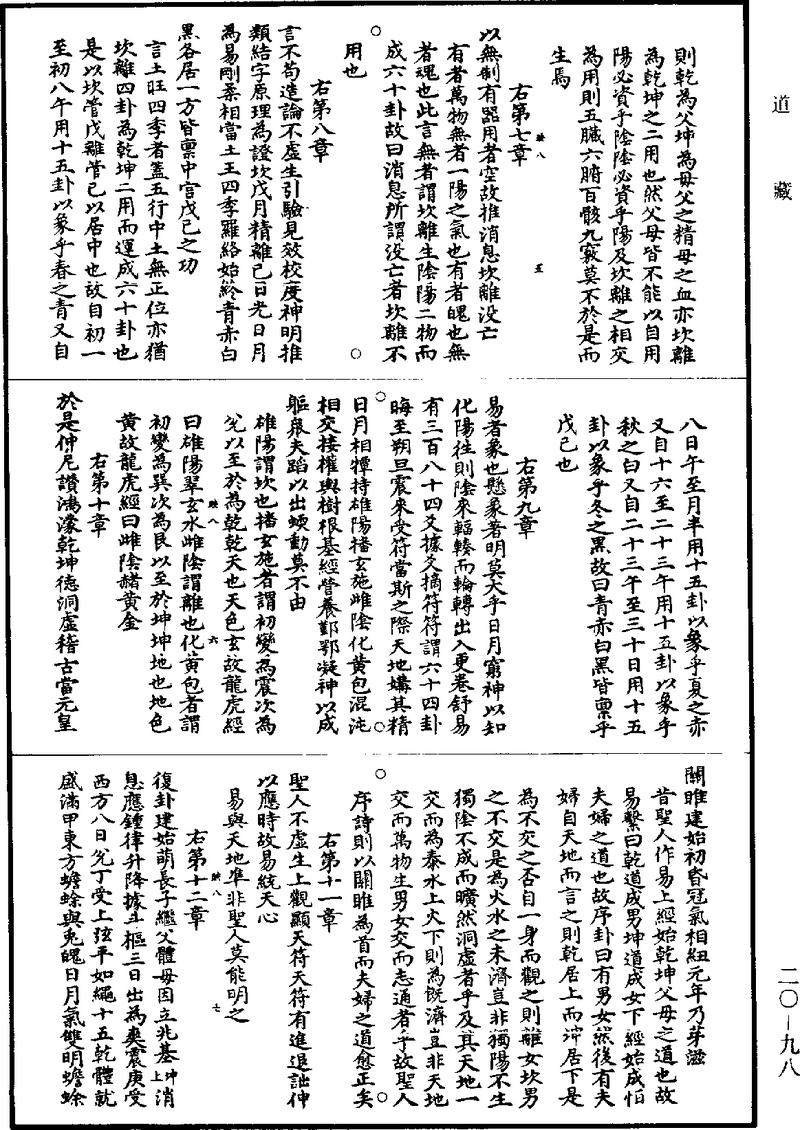 道藏
則乾為父坤為母父之精母之血亦坎離
為乾坤之二用也然父母皆不能以自用
陽必資乎陰陰必資乎陽及坎離之相交
為用則五臟六腑百骸九竅莫不於是而
生焉
右第七章
以無制有器用者空故推消息坎離没亡
有者萬物無者一陽之氣也有者魄也無
者魂也此言無者謂坎離生陰陽二物而
成六十卦故曰消息所謂没亡者坎離不
用也
右第八章
言不苟造論不虛生引驗見效校度神明推
類結字原理為證坎戊月精離已日光日月
為易剛柔相當土王四季羅絡始終青赤白
黑各居一方皆稟中宮戊己之功
言土旺四季者蓋五行中土無正位亦猶
坎離四卦為乾坤二用而運成六十卦也
是以坎管戊離管已以居中也故自初一
至初八午用十五卦以象乎春之青又自
八日午至月半用十五卦以象乎夏之赤
又自十六至二十三午用十五卦以象乎
秋之白又自二十三午至三十日用十五
卦以象乎冬之黑故曰青赤白黑皆稟乎
戊己也
右第九章
易者象也懸象著明莫大乎日月窮神以知
化陽往則陰來輻輳而輪轉出入更卷舒易
有三百八十四爻據爻摘符符謂六十四卦
晦至朔旦震來受符當斯之際天地媾其精
日月相撢持雄陽播玄施雌陰化黃包混沌
相交接權輿樹根基經營養鄞鄂凝神以成
軀衆夫蹈以出蝡動莫不由
雄陽謂坎也播玄施者謂初變為震次為
兌以至於為乾乾天也天色玄故龍虎經
曰雄陽翠玄水雌陰謂離也化黃包者謂
初變為巽次為艮以至於坤坤地也地色
黃故龍虎經曰雌陰赭黃金
右第十章
於是仲尼讚鴻濛乾坤德洞虛稽古當元皇
關雎建始初昏冠氣相紐元年乃芽滋
昔聖人作易上經始乾坤父母之道也故
易繫曰乾道成男坤道成女下經始咸恒
夫婦之道也故序卦曰有男女然後有夫
婦自天地而言之則乾居上而坤居下是
為不交之否自一身而觀之則離女坎男
之不交是為火水之未濟豈非獨陽不生
獨陰不成而曠然洞虛者乎及其天地一
交而為泰水上火下則為既濟豈非天地
交而萬物生男女交而志通者乎故聖人
序詩則以關雎為首而夫婦之道愈正矣
右第十一章
聖人不虛生上觀顯天符天符有進退詘伸
以應時故易統天心
易與天地準非聖人莫能明之
右第十二章
復卦建始萌長子繼父體母因立兆基坤上消
息應鍾律升降據斗樞三日出為爽震庚受
西方八日兌丁受上弦平如繩十五乾體就
盛滿甲東方蟾蜍與兎魄日月氣雙明蟾蜍
二〇—九八